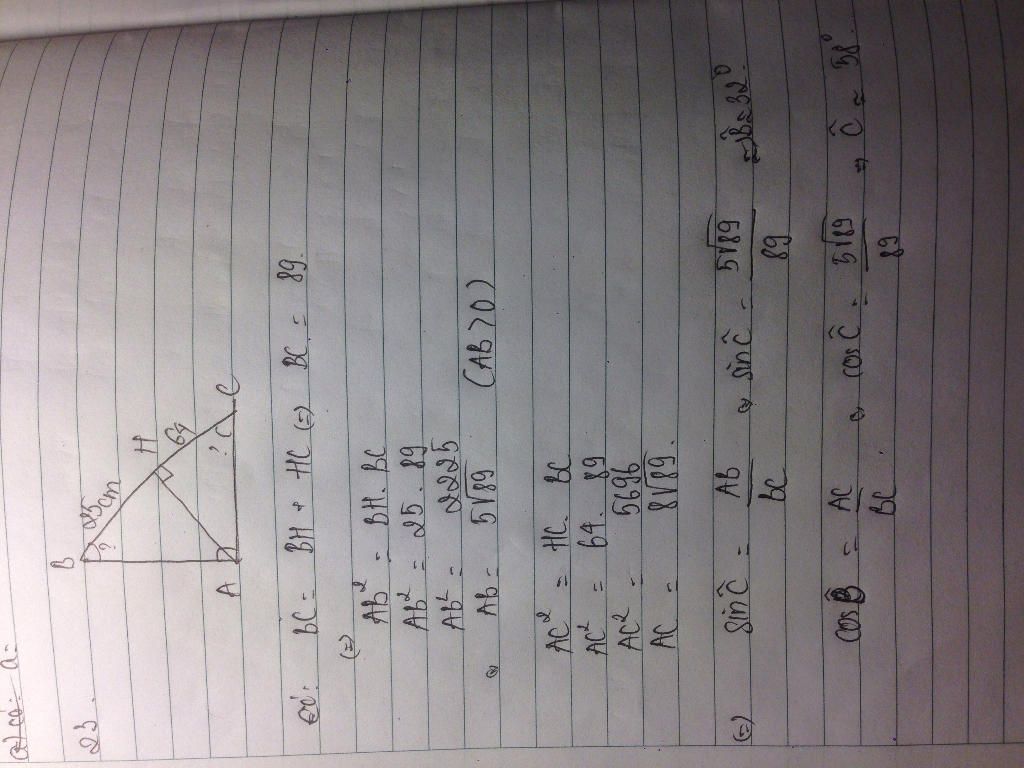 a =
23.
B
25 cm
?
H
64
?
A
C
Có: BC = BH + HC (=) BC = 89.
(=)
AB² = BH. BC
AB² = 25. 89
AB² = 2225
=> AB = 5√89 (AB > 0)
AC² = HC. BC
AC² = 64. 89
AC² = 5696
AC = 8√89.
(=) sinĈ = AB/BC => sinĈ = 5√89/89 => B̂ = 32°.
cosB̂ = AC/BC => cosĈ = 5√89/89 => Ĉ = 58°.